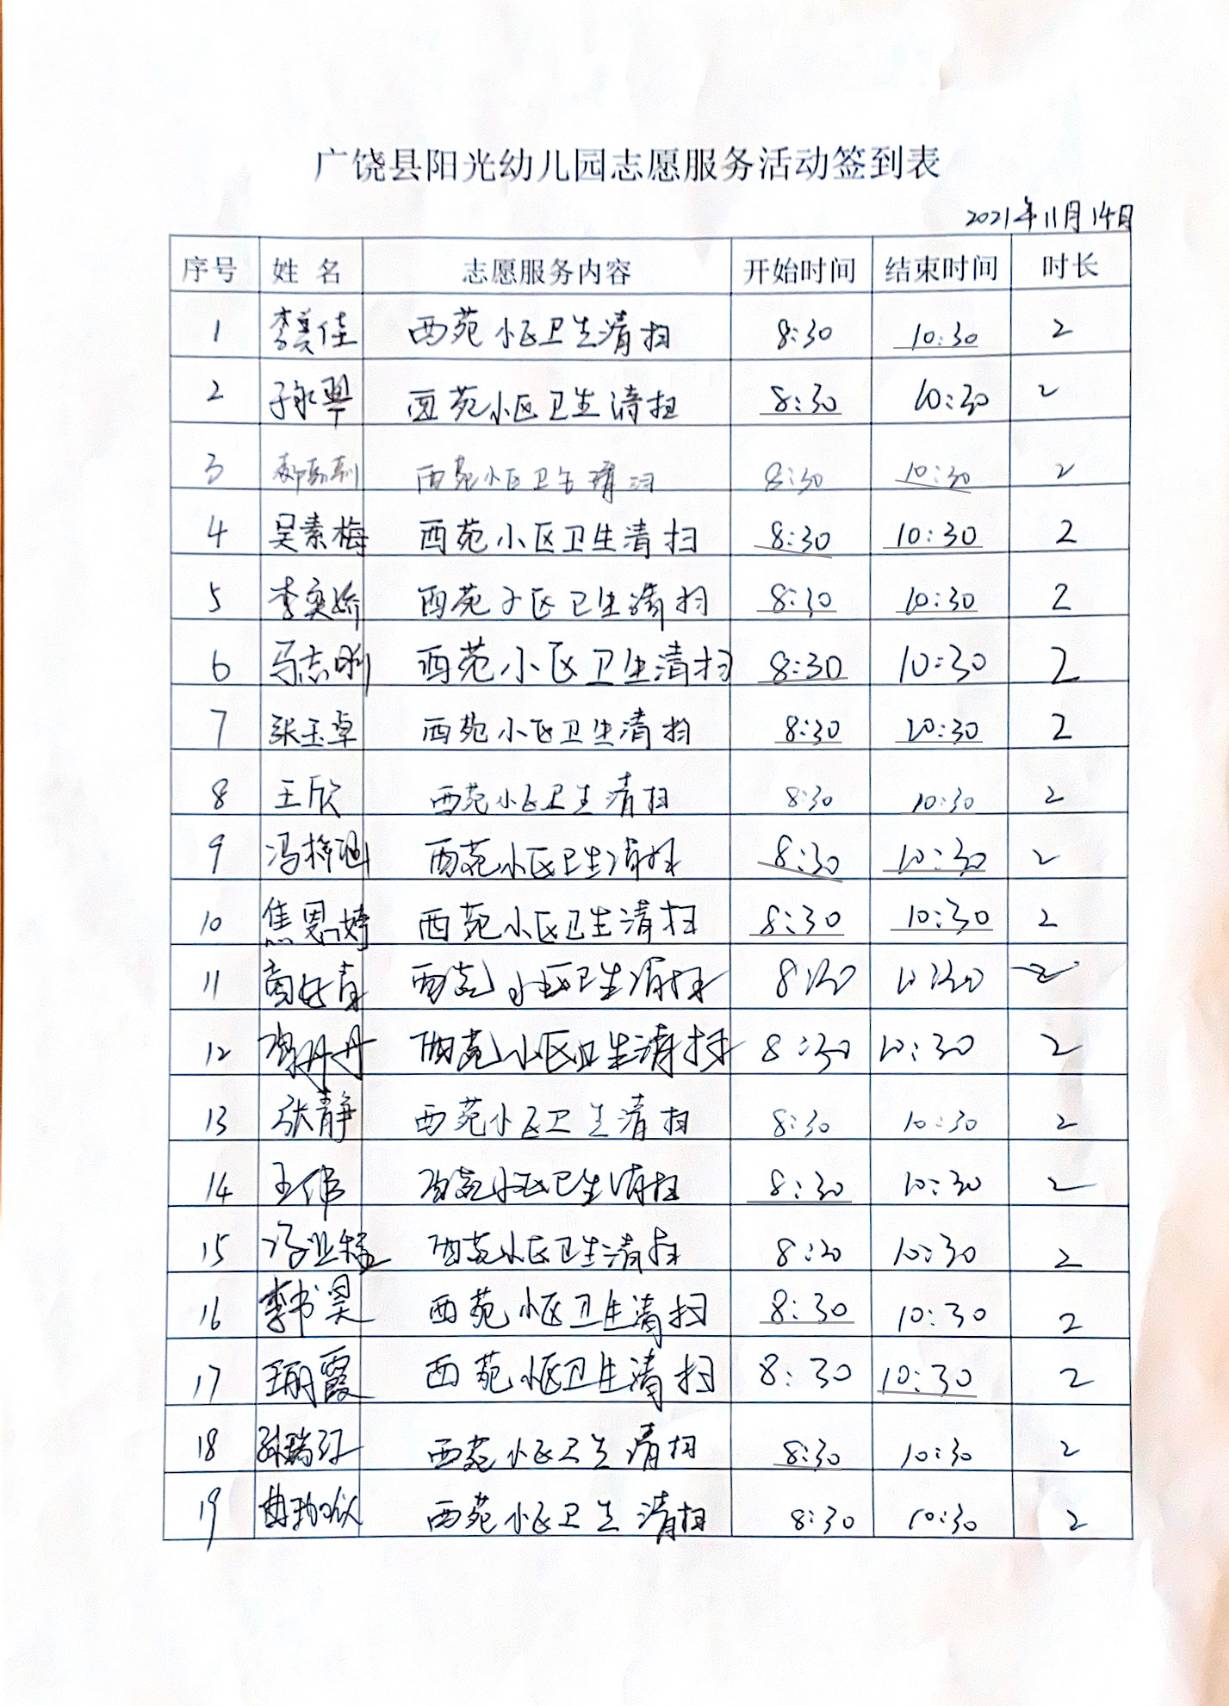 广饶县阳光幼儿园志愿服务活动签到表
2021年11月14日
序号 姓 名 志愿服务内容 开始时间 结束时间 时长
1 李美佳 西苑小区卫生清扫 8:30 10:30 2
2 西苑小区卫生清扫 8:30 10:30 2
3 西苑小区卫生清扫 8:30 10:30 2
4 吴素梅 西苑小区卫生清扫 8:30 10:30 2
5 李奕娇 西苑小区卫生清扫 8:30 10:30 2
6 马志刚 西苑小区卫生清扫 8:30 10:30 2
7 张玉卓 西苑小区卫生清扫 8:30 10:30 2
8 王欣 西苑小区卫生清扫 8:30 10:30 2
9 西苑小区卫生清扫 8:30 10:30 2
10 焦恩婷 西苑小区卫生清扫 8:30 10:30 2
11 西苑小区卫生清扫 8:30 10:30 2
12 西苑小区卫生清扫 8:30 10:30 2
13 张静 西苑小区卫生清扫 8:30 10:30 2
14 王伟 西苑小区卫生清扫 8:30 10:30 2
15 西苑小区卫生清扫 8:30 10:30 2
16 李书昊 西苑小区卫生清扫 8:30 10:30 2
17 王丽霞 西苑小区卫生清扫 8:30 10:30 2
18 孙瑞江 西苑小区卫生清扫 8:30 10:30 2
19 西苑小区卫生清扫 8:30 10:30 2